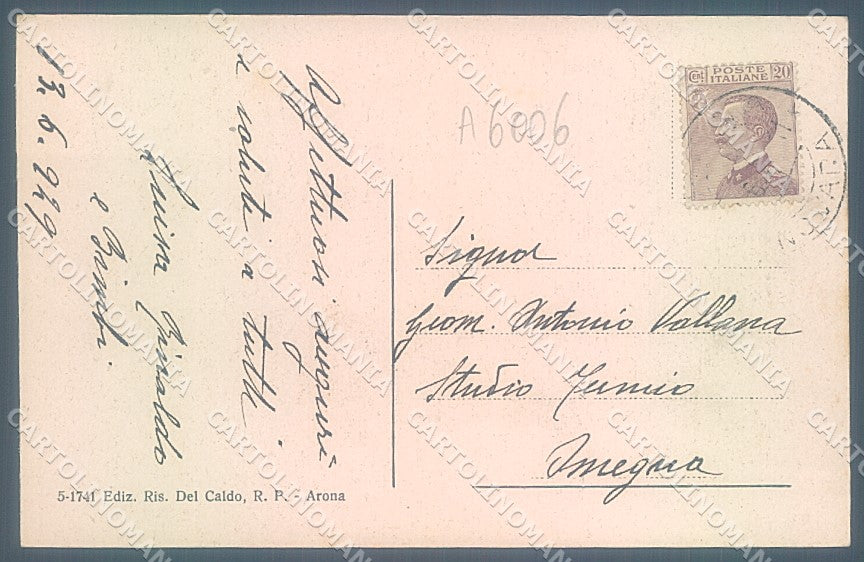 13.6.929
Affettuosi auguri
e saluti a tutti
Luisa Rinaldo
e Bimbi
A6006
POSTE
ITALIANE
Cent 20
NOVARA
Signor
Geom. Antonio Vallana
Studio Tecnico
Omegna
5-1741 Ediz. Ris. Del Caldo, R. P. - Arona
CARTOLINOMANIA